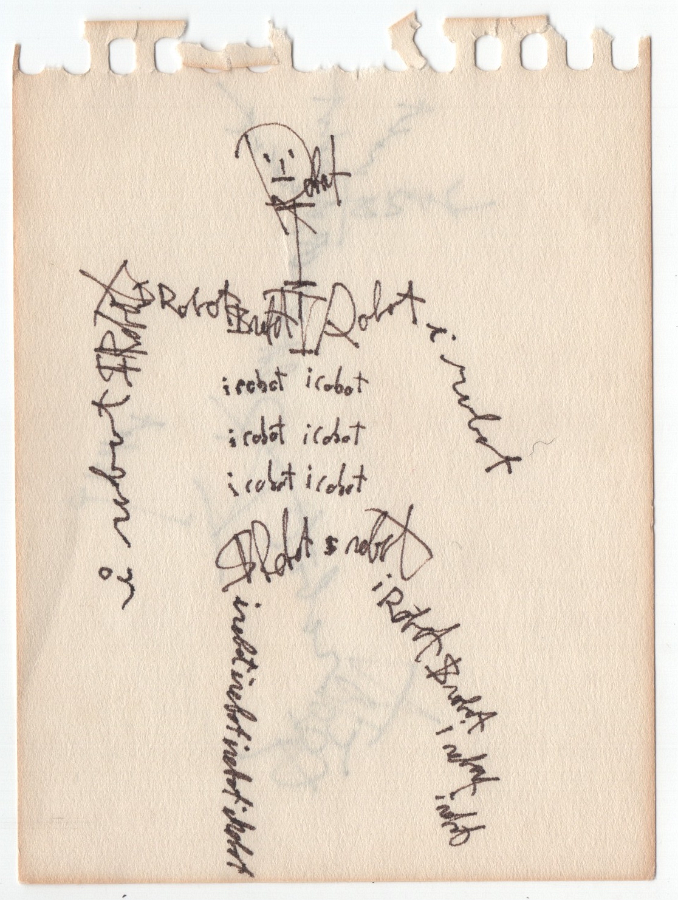 Robot
I Robot I Robot I Robot
i robot I Robot
i robot
i robot i robot
i robot i robot
i robot i robot
I Robot I robot
i robot i robot i robot i robot
i Robot I robot i robot i robot